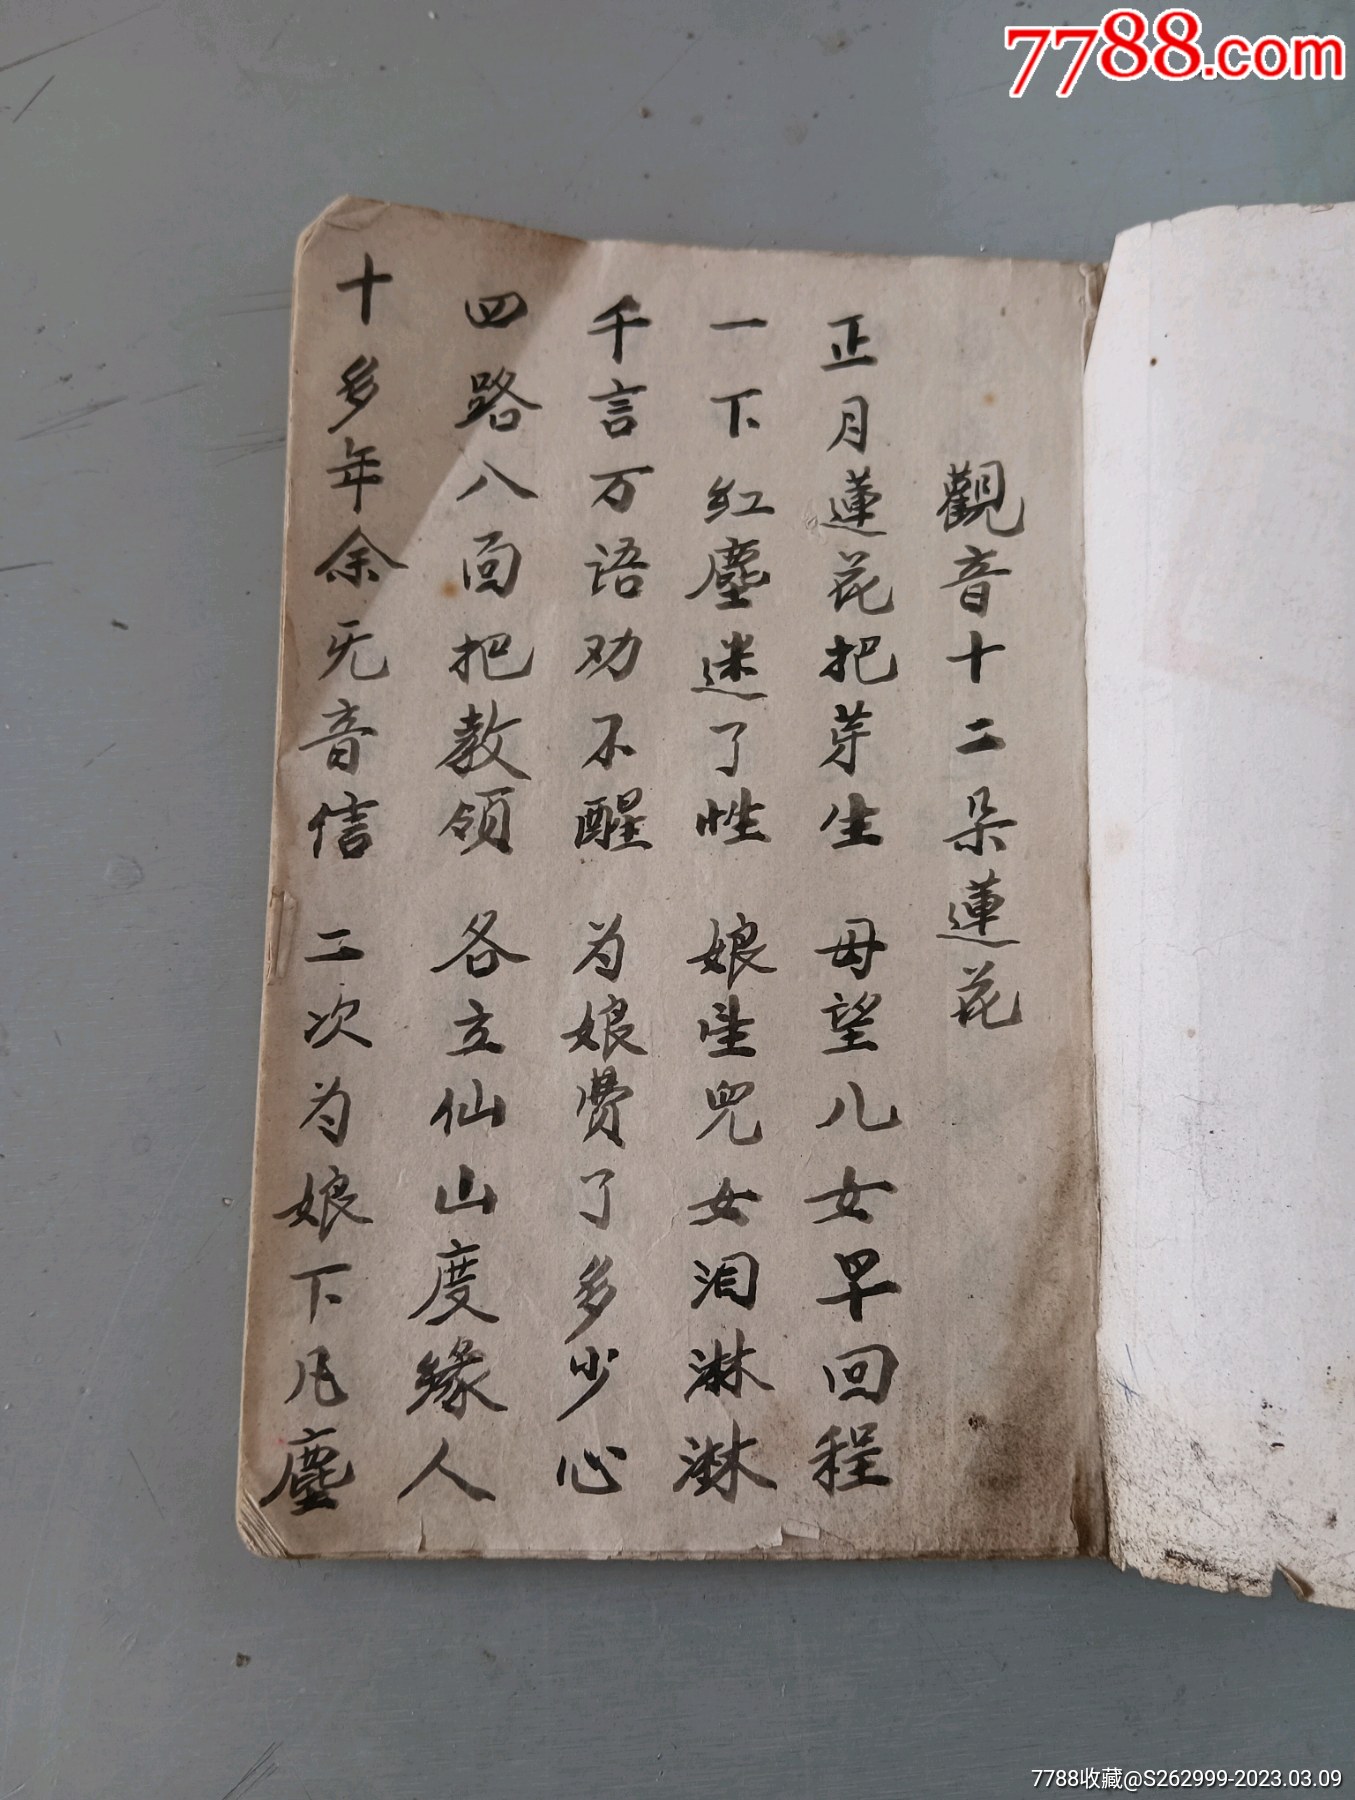 7788.com
觀音十二朵蓮花
正月蓮花把芽生 母望儿女早回程
一下红塵迷了性 娘坐兜女泪淋淋
千言万语劝不醒 为娘费了多少心
四路八面把教领 各立仙山度缘人
十多年余无音信 二次为娘下凡塵
7788收藏@S262999-2023.03.09